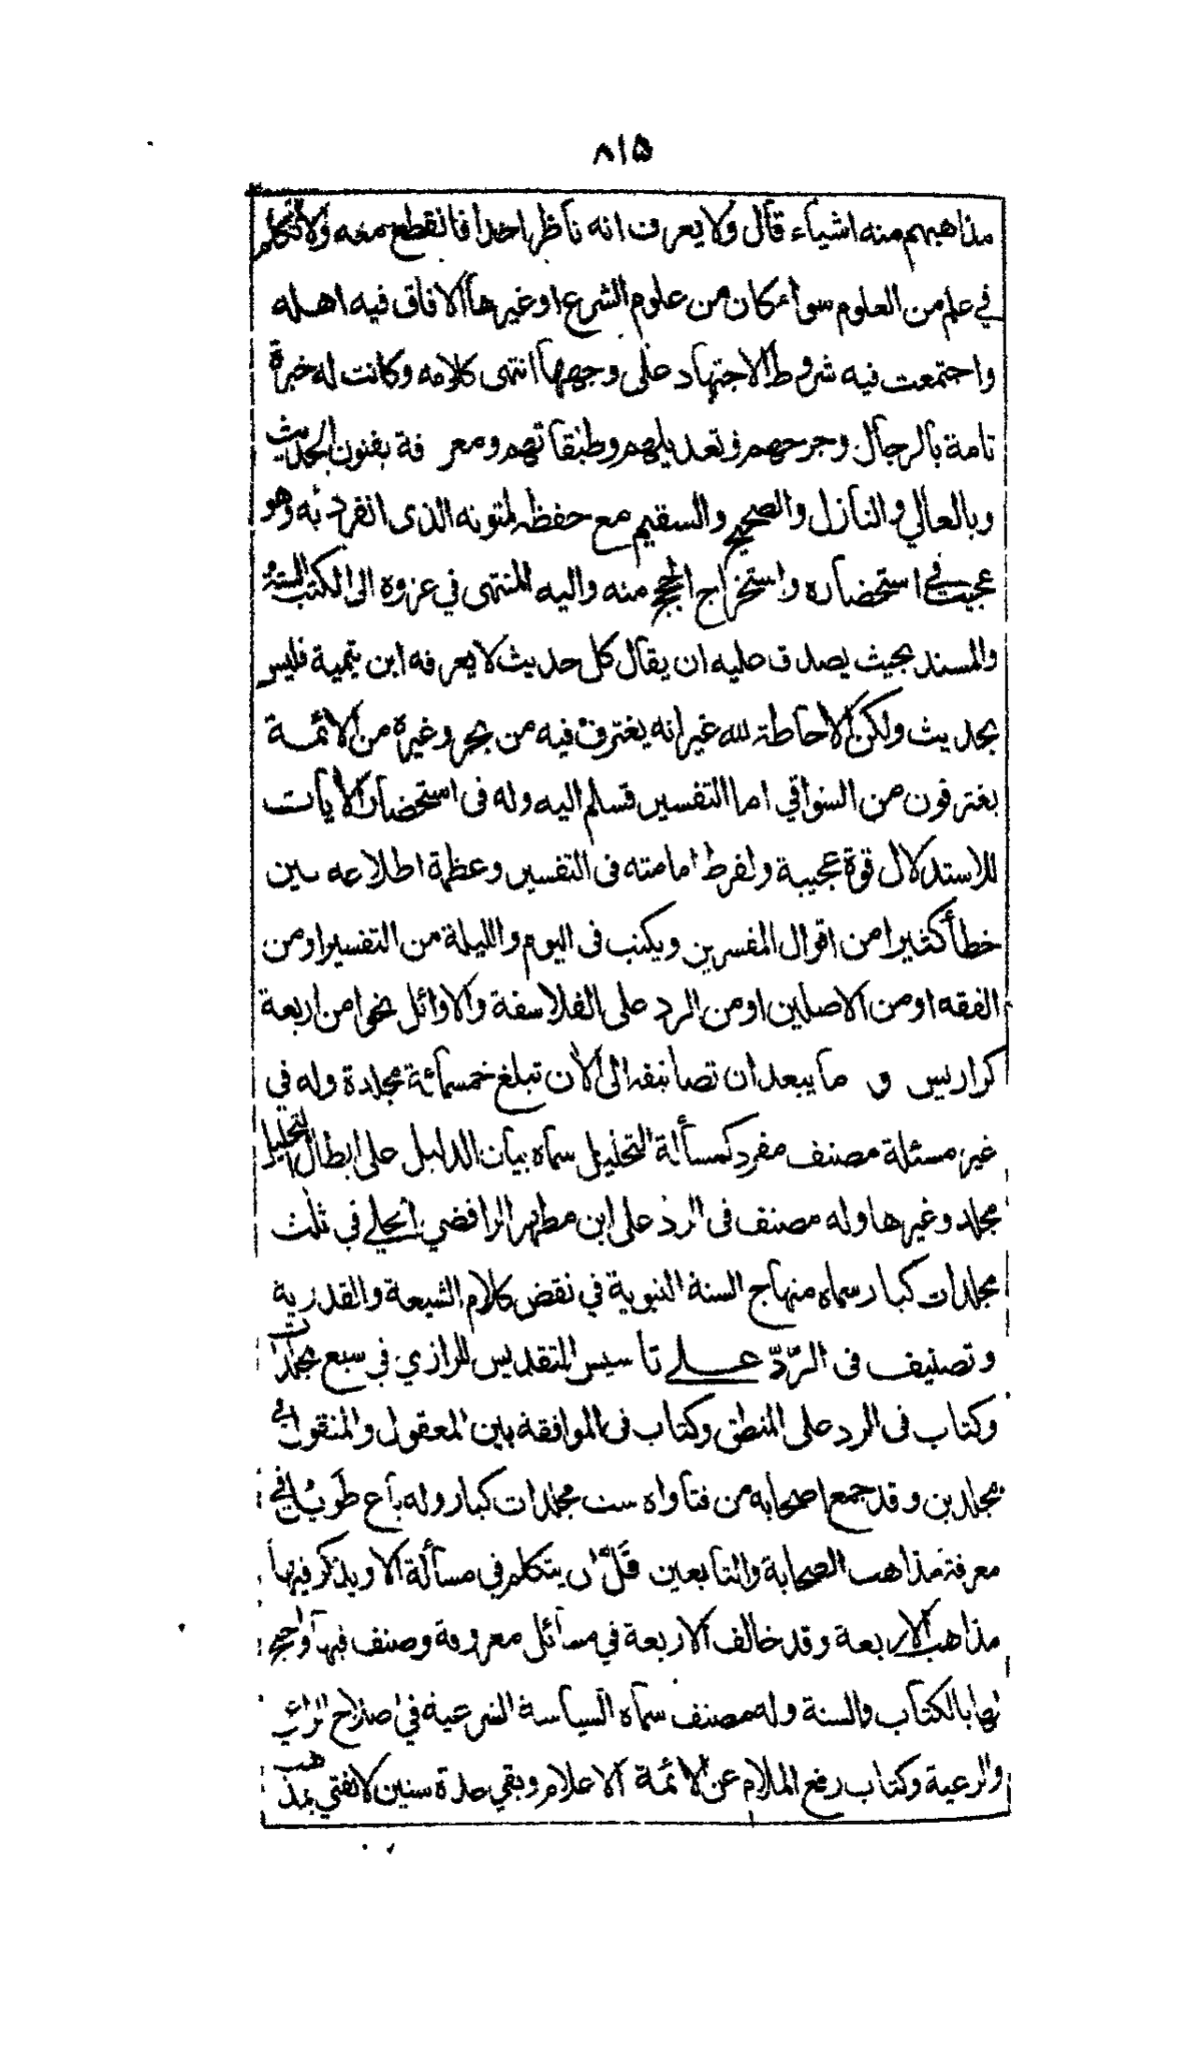 ٨١٥
مذاهبهم منه اشياء قال ولا يعرف انه ناظر احدا فانقطع معه ولا تكلم
في علم من العلوم سواء كان من علوم الشرع او غيرها الا فاق فيه اهله
واجتمعت فيه شروط الاجتهاد على وجهها انتهى كلامه وكانت له خبرة
تامة بالرجال وجرحهم وتعديلهم وطبقاتهم ومعرفة بفنون الحديث
وبالعالي والنازل والصحيح والسقيم مع حفظه لمتونه الذى انفرد به وهو
عجيب في استحضاره واستخراج الحجج منه واليه المنتهى في عزوه الى الكتب الستة
والمسند بحيث يصدق عليه ان يقال كل حديث لا يعرفه ابن تيمية فليس
بحديث ولكن الاحاطة لله غير انه يغترف فيه من بحر وغيره من الائمة
يغترفون من السواقي اما التفسير فسلم اليه وله فى استحضار الآيات
للاستدلال قوة عجيبة ولفرط امامته فى التفسير وعظمة اطلاعه بين
خطأ كثيرا من اقوال المفسرين ويكتب فى اليوم والليلة من التفسير او من
الفقه او من الاصلين او من الرد على الفلاسفة والاوائل نحوا من اربعة
كراريس و ما يبعد ان تصانيفه الى الآن تبلغ خمسمائة مجلدة وله في
غير مسئلة مصنف مفرد كمسألة التحليل سماه بيان الدليل على ابطال التحليل
مجلد وغيرها وله مصنف فى الرد على ابن مطهر الرافضي الحلي في ثلث
مجلدات كبار سماه منهاج السنة النبوية في نقض كلام الشيعة والقدرية
وتصنيف فى الردّ على تاسيس التقديس للرازي في سبع مجلدات
وكتاب فى الرد على المنطق وكتاب فى الموافقة بين المعقول والمنقول في
مجلدين وقد جمع اصحابه من فتاواه ست مجلدات كبار وله باع طويل في
معرفة مذاهب الصحابة والتابعين قَلّ ان يتكلم في مسألة الا ويذكر فيها
مذاهب الاربعة وقد خالف الاربعة في مسائل معروفة وصنف فيها واحتج
لها بالكتاب والسنة وله مصنف سماه السياسة الشرعية في اصلاح الراعي
والرعية وكتاب رفع الملام عن الائمة الاعلام وبقي عدة سنين لا يفتي بمذهب